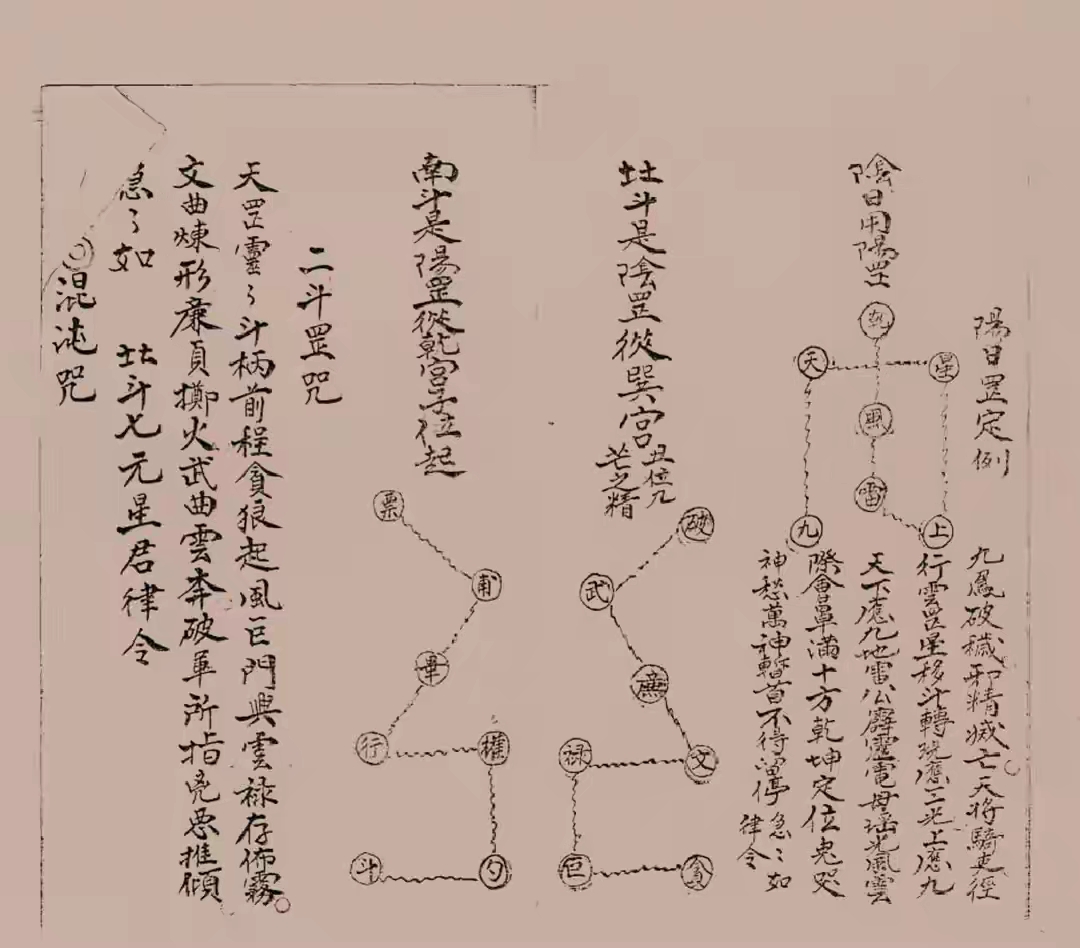 陽日罡定例
陰日用陽罡
天
星
雷
九
上
九鳳破穢邪精滅亡天將騎吏徑
行雲罡星移斗轉現應三光上應九
天下應九地雷公霹靂電母瑤光風雲
際會罩滿十方乾坤定位鬼哭
神愁萬神暫首不得留停急〻如
律令
北斗是陰罡從巽宮丑位九
芒之精
破
武
廉
文
禄
巨
貪
南斗是陽罡從乾宮子位起
票
甫
畢
行
權
勺
斗
二斗罡咒
天罡靈〻斗柄前程貪狼起風巨門興雲禄存佈霧
文曲煉形廉貞擲火武曲雲奔破軍所指兇惡摧傾
急〻如 北斗七元星君律令
混沌咒